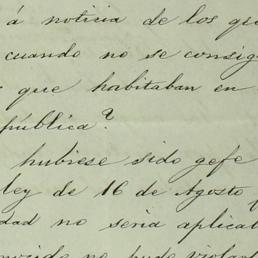 á noticia de los que
cuando no se consig
que habitaban en
pública?
hubiese sido gefe
ley de 16 de Agosto
dad no seria aplicat
no pudo violar